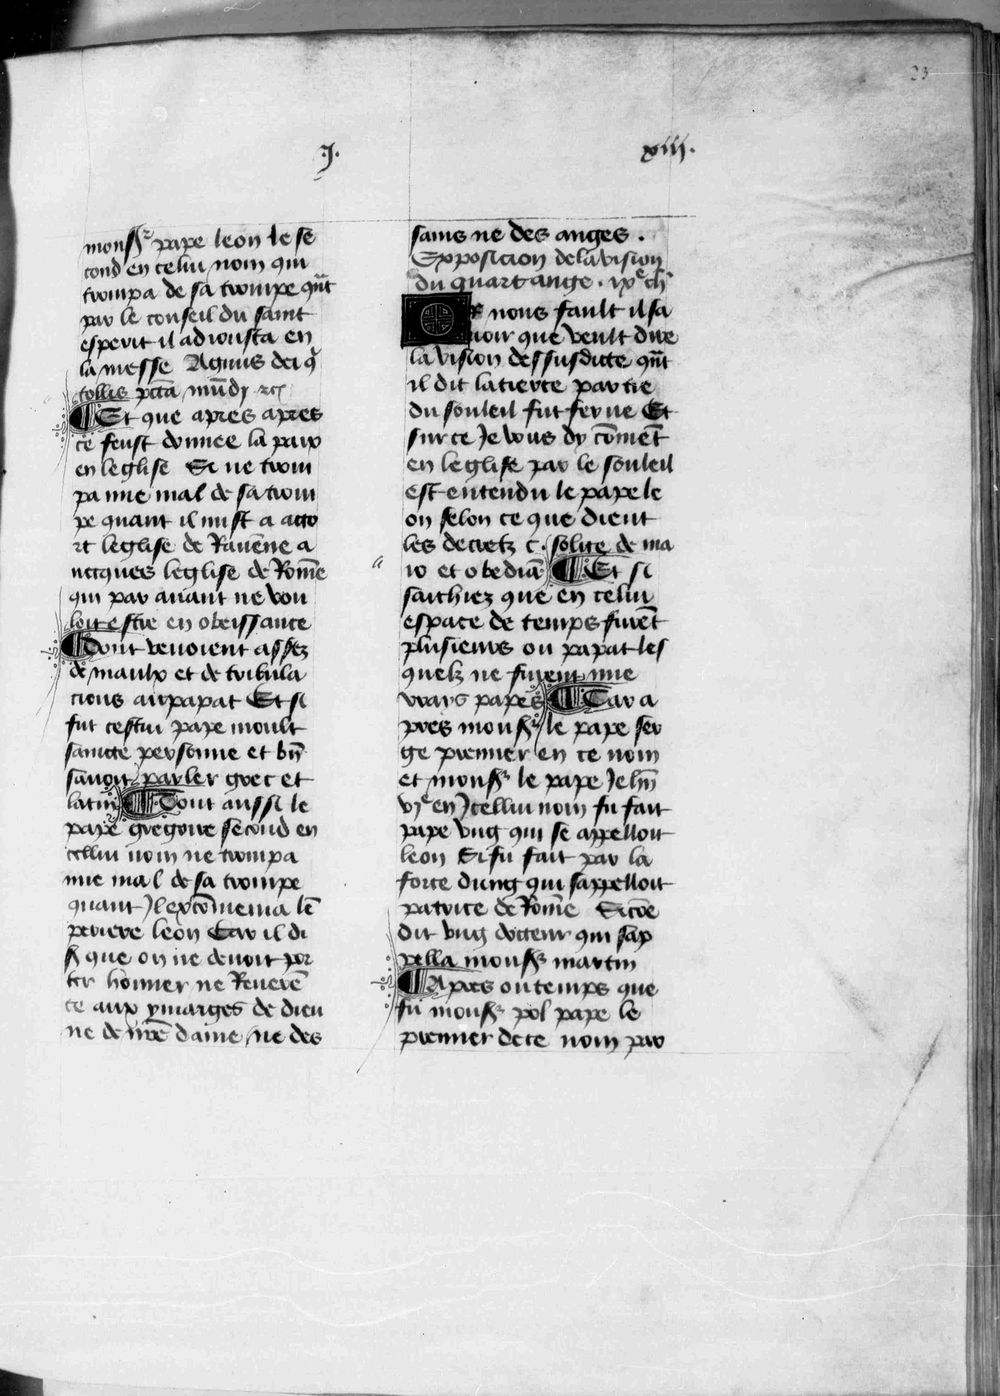 23
.J. xiii.
monsr pape leon le se
cond en celui nom qui
trompa de sa trompe qnt
par le conseil du saint
esperit il adiousta en
la messe Agnus dei q
tollis pcca mundj etc
¶ Et que apres apres
ce feust donnee la paix
en leglise Si ne trom
pa mie mal de sa trom
pe quant il mist a acco
rt leglise de Rauenne a
uecques leglise de Romme
qui par auant ne vou
loit estre en obeissance
¶ Dont venoient assez
de maulx et de tribula
cions au papat Et si
fut cestui pape moult
saincte personne et bn
sauoit parler grec et
latin ¶ Dont aussi le
pape gregoire second en
cellui nom ne trompa
mie mal de sa trompe
quant Jl excommenia lē
periere leon Car il di
st que on ne deuoit por
ter honner ne Reueren
ce aux ymaiges de dieu
ne de nre dame ne des
sains ne des anges .
Exposicion de la vision
du quart ange . ixe ch
OR nous fault il sa
uoir que veult dire
la vision dessusdicte qnt
il dit la tierce partie
du souleil fut ferue Et
sur ce Je vous dy coment
en leglise par le souleil
est entendu le pape le
on selon ce que dient
les decretz c. solite de ma
io et obedia ¶ Et si
saichiez que en celui
espace de temps furent
plusieurs ou papat les
quelz ne furent mie
vrays papes ¶ Car a
pres monsr le pape ser
ge premier en ce nom
et monsr le pape Jehn
vje en Jcellui nom fu fait
pape vng qui se appelloit
leon Si fu fait par la
force dung qui sappelloit
patrice de Romme Sicoe
dit vng docteur qui sap
pella monsr martin
¶ Apres ou temps que
fu monsr pol pape le
premier de ce nom par